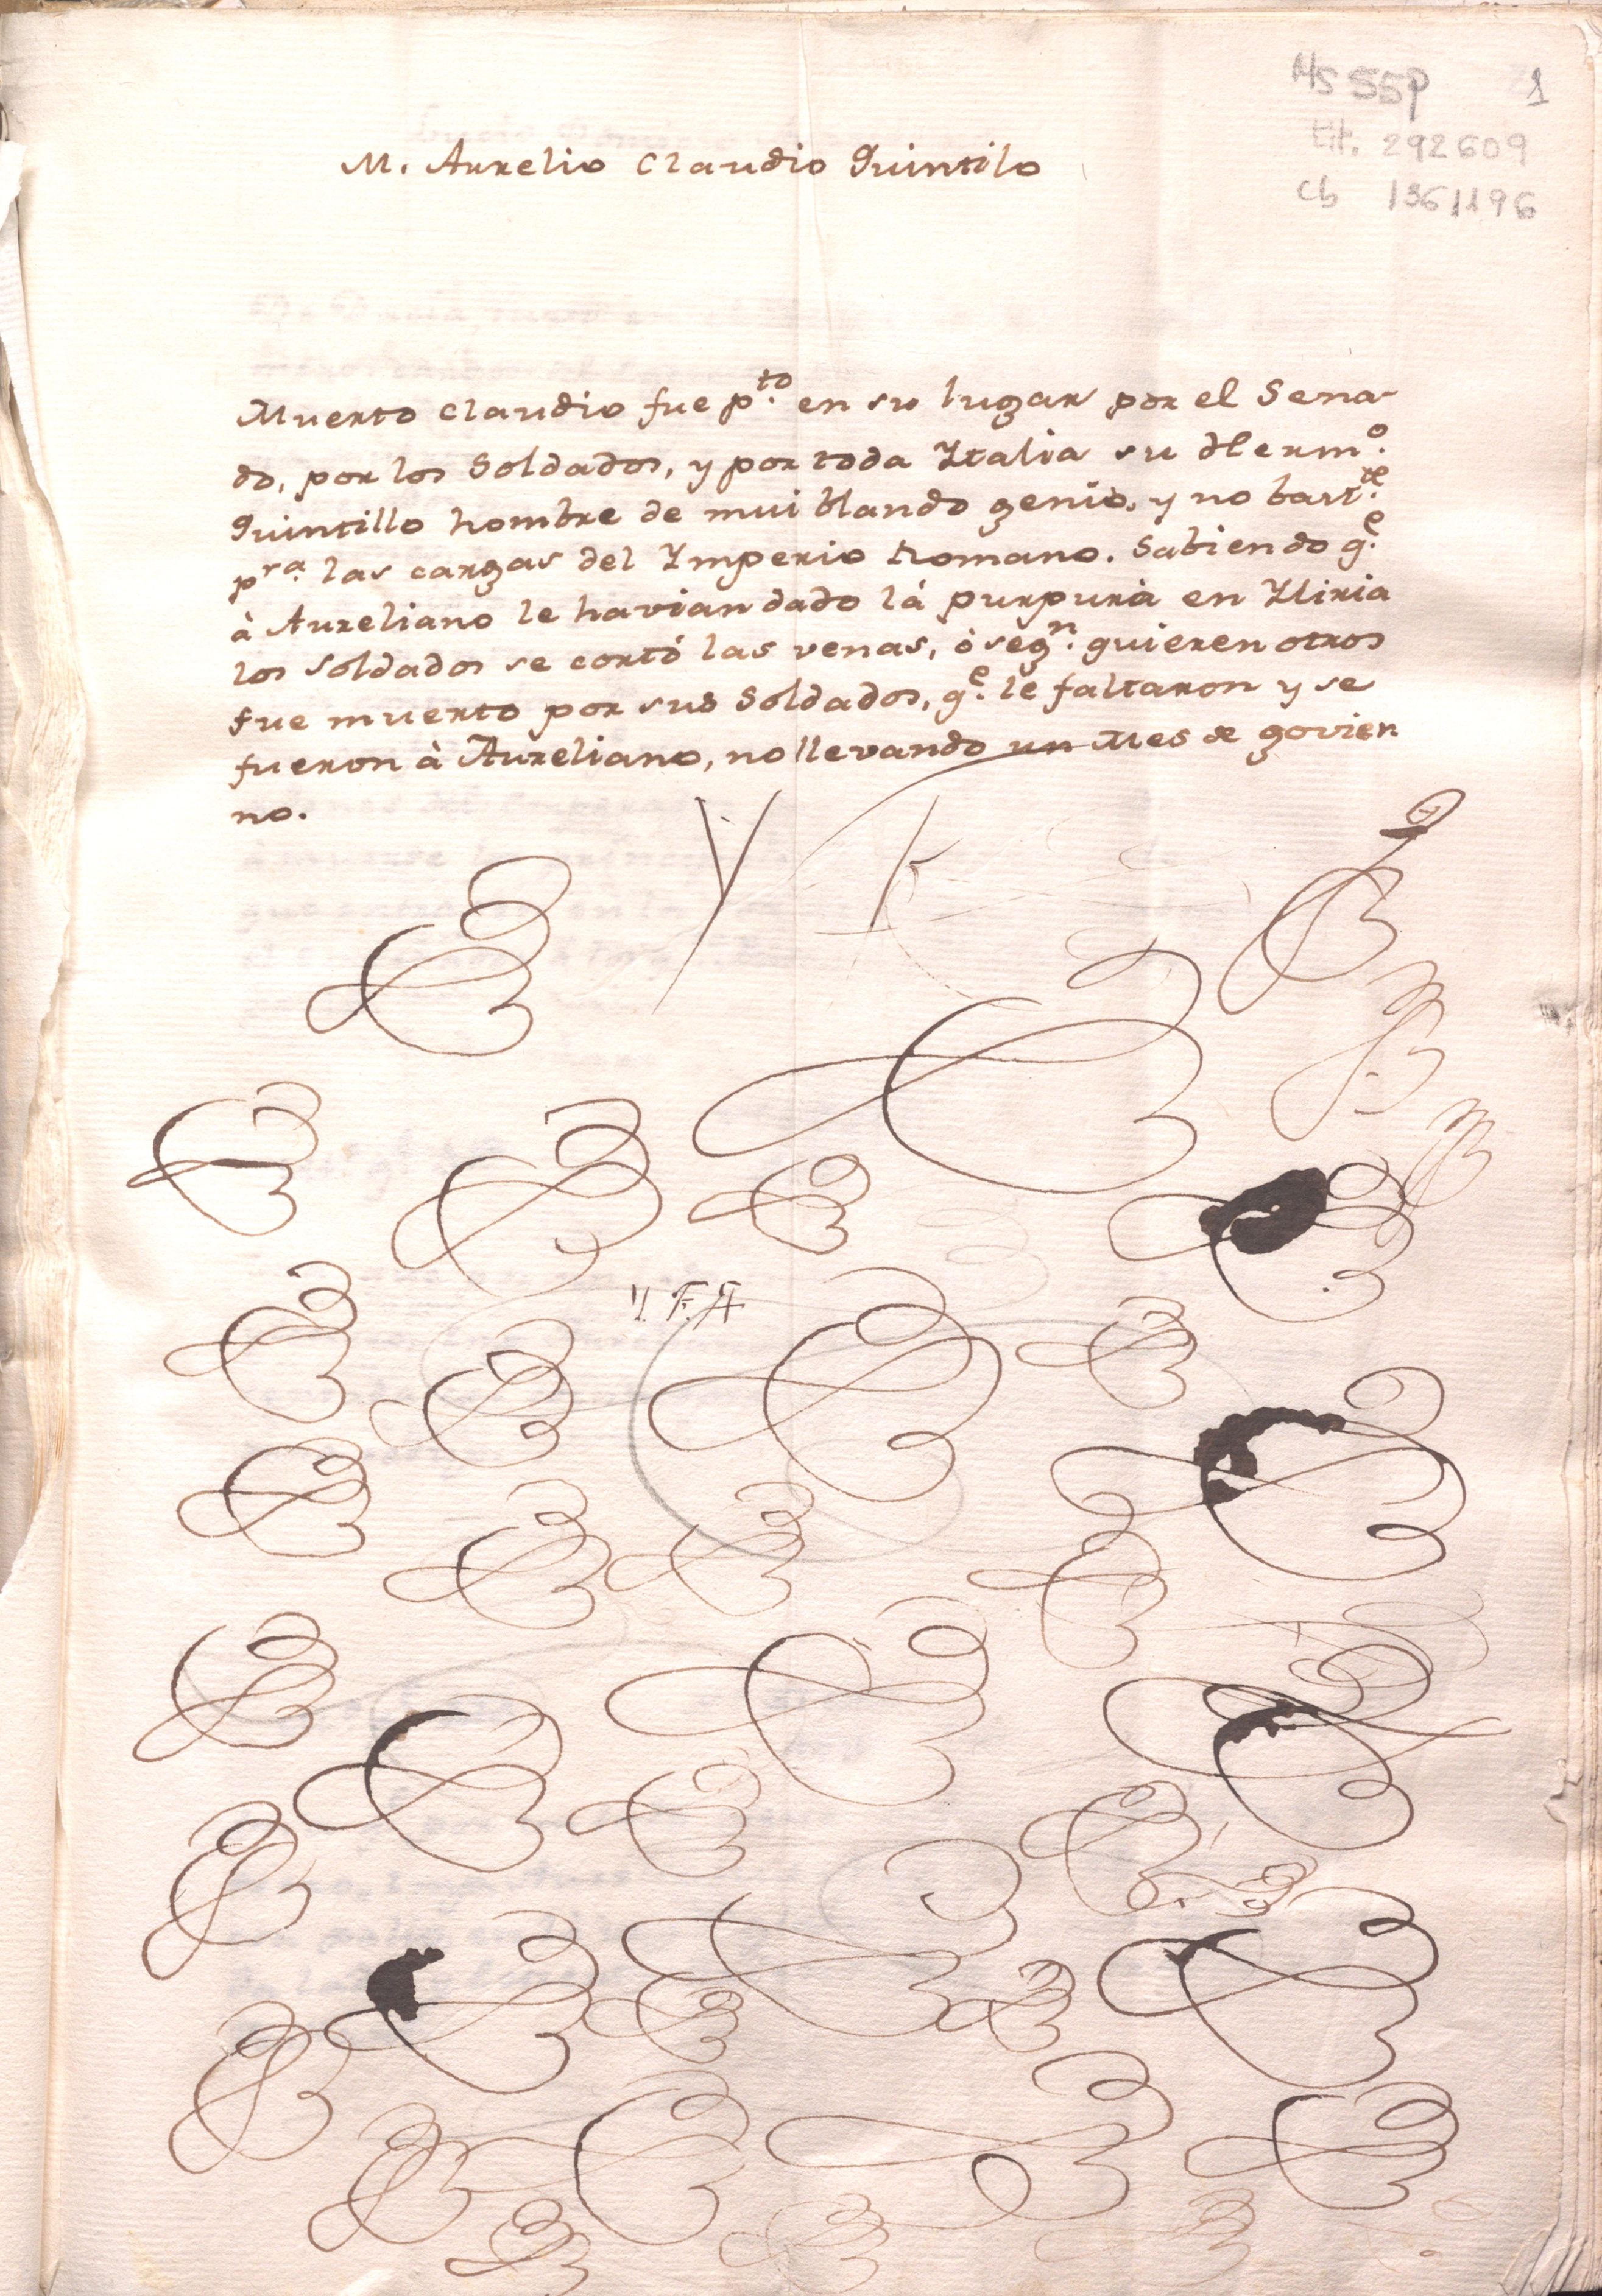 Ms 55P 1
tit. 292609
cb 1361196
M. Aurelio Claudio Quintilo
Muerto Claudio fue p.to en su lugar por el Sena-
do, por los Soldados, y por toda Ytalia su Herm.o
Quintillo hombre de mui blando genio, y no bast.te
pr.a las cargas del Ymperio Romano. Sabiendo q.e
à Aureliano le havian dado la purpura en Yliria
los soldados se cortó las venas, ò seg.n quieren otros
fue muerto por sus Soldados, q.e le faltaron y se
fueron à Aureliano, no llevando un Mes de govier
no.